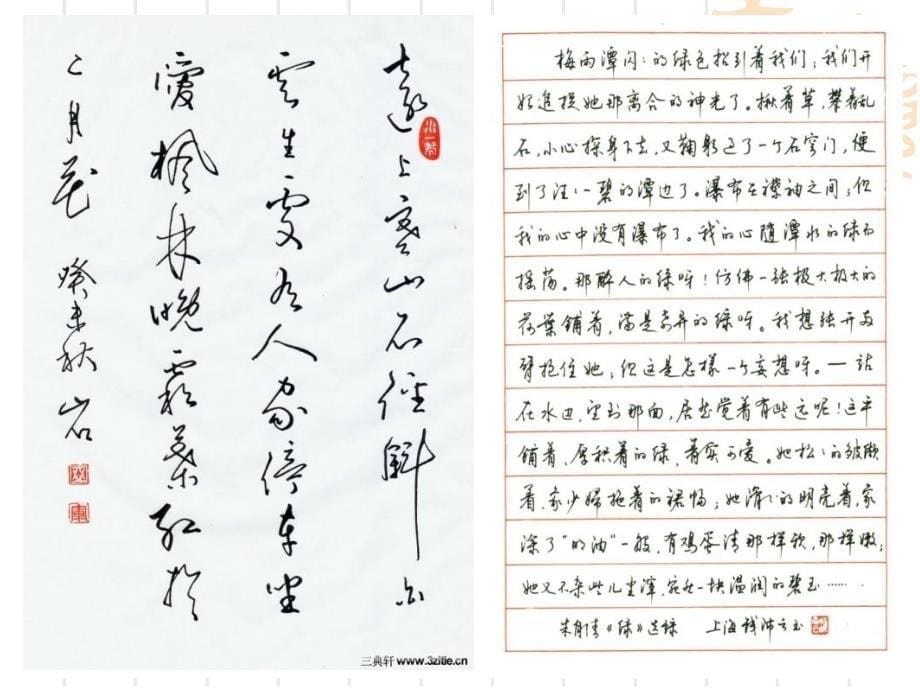 遠上寒山石徑斜白
雲生處有人家停車坐
愛楓林晚霜葉紅於
二月花 癸未秋 岩
三典轩 www.3zitie.cn
梅雨潭闪闪的绿色招引着我们；我们开
始追捉她那离合的神光了。揪着草，攀着乱
石，小心探身下去，又鞠躬过了一个石穹门，便
到了汪汪一碧的潭边了。瀑布在襟袖之间；但
我的心中没有瀑布了。我的心随潭水的绿而
摇荡。那醉人的绿呀！仿佛一张极大极大的
荷葉铺着，满是奇异的绿呀。我想张开两
臂抱住她；但这是怎样一个妄想呀。—站
在水边，望到那面，居然觉着有些远呢！这平
铺着、厚积着的绿，着实可爱。她松松的皱缬
着，象少婦拖着的裙幅；她滑滑的明亮着，象
涂了“明油”一般，有鸡蛋清那样软，那样嫩；
她又不杂些儿尘滓，宛然一块温润的碧玉……
朱自清《绿》选录 上海钱沛云书